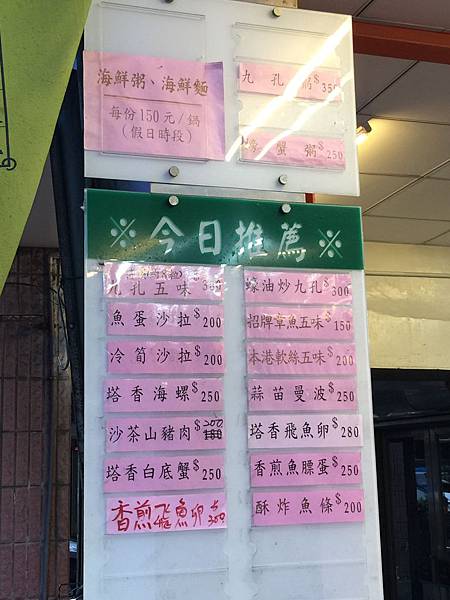 海鮮粥、海鮮麵
每份150元/鍋
(假日時段)
九孔粥$350
螃蟹粥$250
※今日推薦※
九孔五味 300
魚蛋沙拉$200
冷筍沙拉$200
塔香海螺$250
沙茶山豬肉 200
塔香白底蟹$250
香煎飛魚卵$300
蠔油炒九孔$300
招牌章魚五味$150
本港軟絲五味$200
蒜苗曼波$250
塔香飛魚卵$280
香煎魚膘蛋$250
酥炸魚條$200